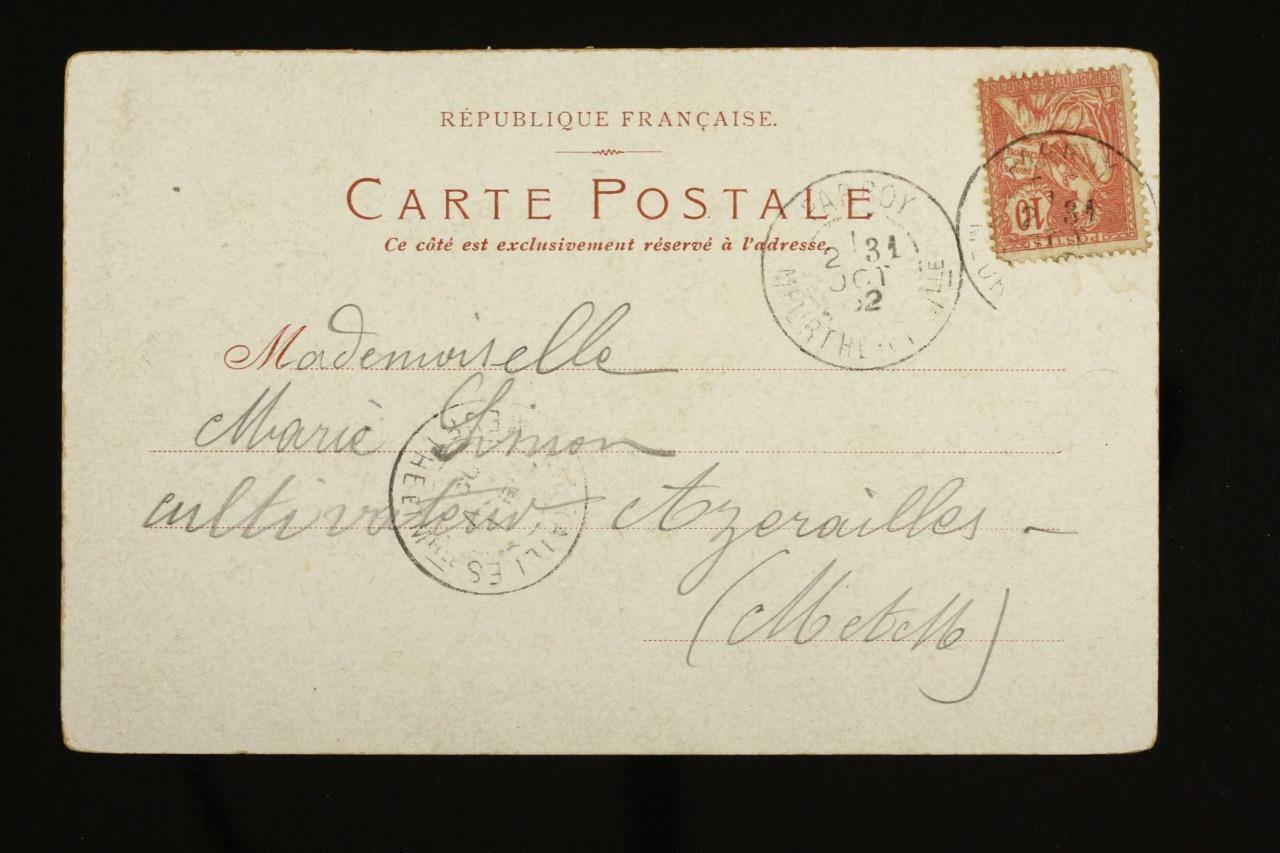 RÉPUBLIQUE FRANÇAISE.
CARTE POSTALE
Ce côté est exclusivement réservé à l'adresse.
RÉPUBLIQUE FRANÇAISE
10
POSTES
31
PARROY
2 31
OCT
MEURTHE-ET-
Mademoiselle
Marie Simon
cultivateur Azerailles -
(M et M)
AILLES
MEURTHE